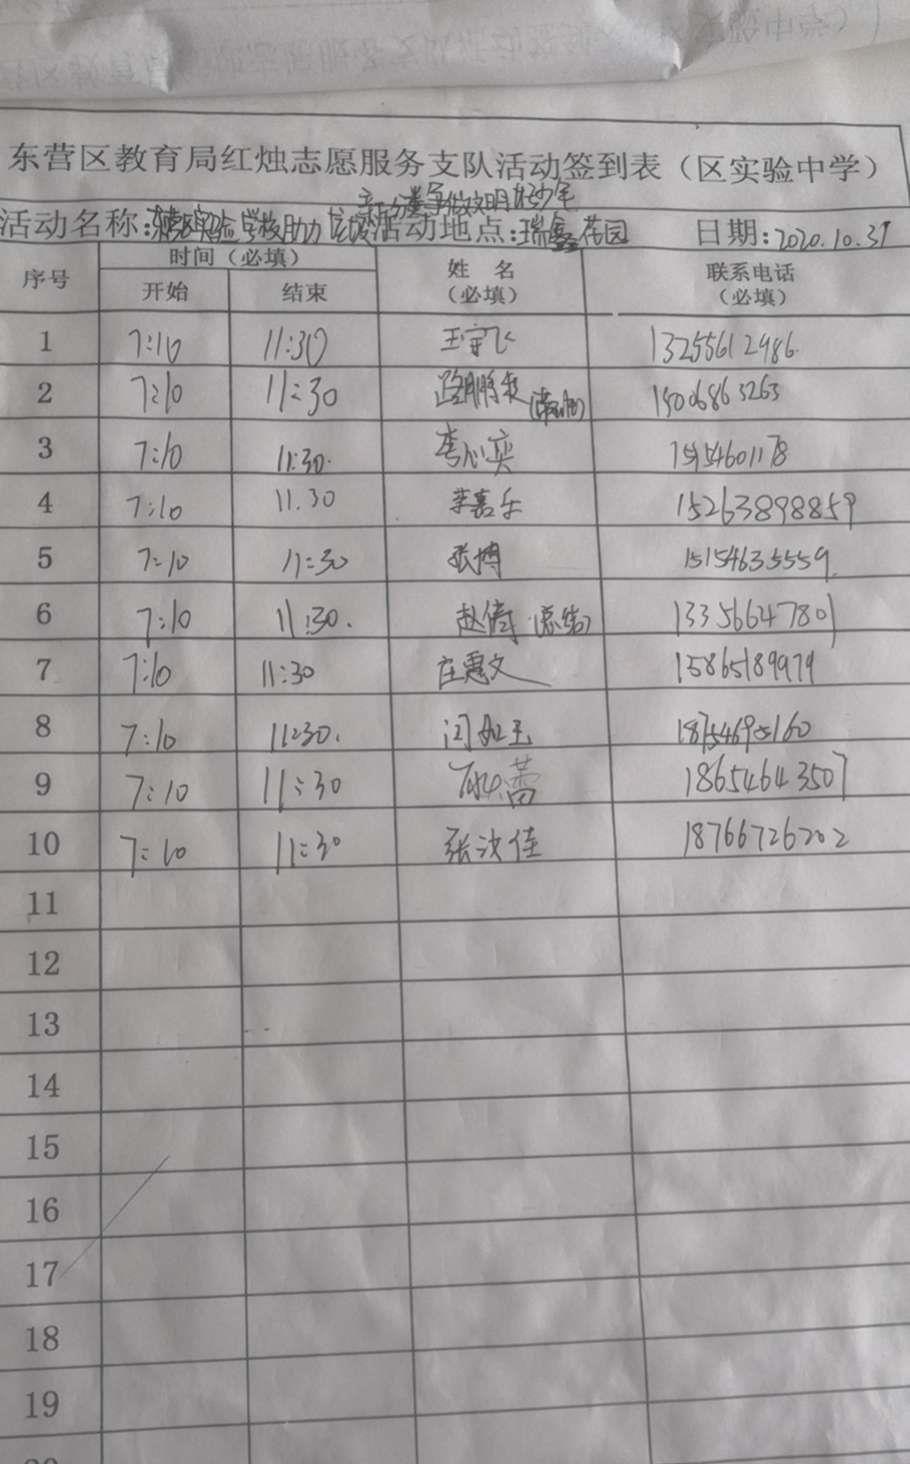 东营区教育局红烛志愿服务支队活动签到表（区实验中学）
争做文明好少年
活动名称: 实验学校助力 活动地点:瑞鑫花园 日期:2020.10.31
序号 时间（必填） 姓名（必填） 联系电话（必填）
开始 结束
1 7:10 11:30 王宇飞 13255612986
2 7:10 11:30 路鹏 15006863263
3 7:10 11:30. 李心奕 15154601178
4 7:10 11.30 李嘉乐 15263898859
5 7:10 11:30 张博 15154635559.
6 7:10 11:30. 赵倩 13356647801
7 7:10 11:30 庄惠文 15865189979
8 7:10 11:30. 闫如玉 18754695160
9 7:10 11:30 蕾 18654643507
10 7:10 11:30 张汝佳 18766726202
11
12
13
14
15
16
17
18
19
20